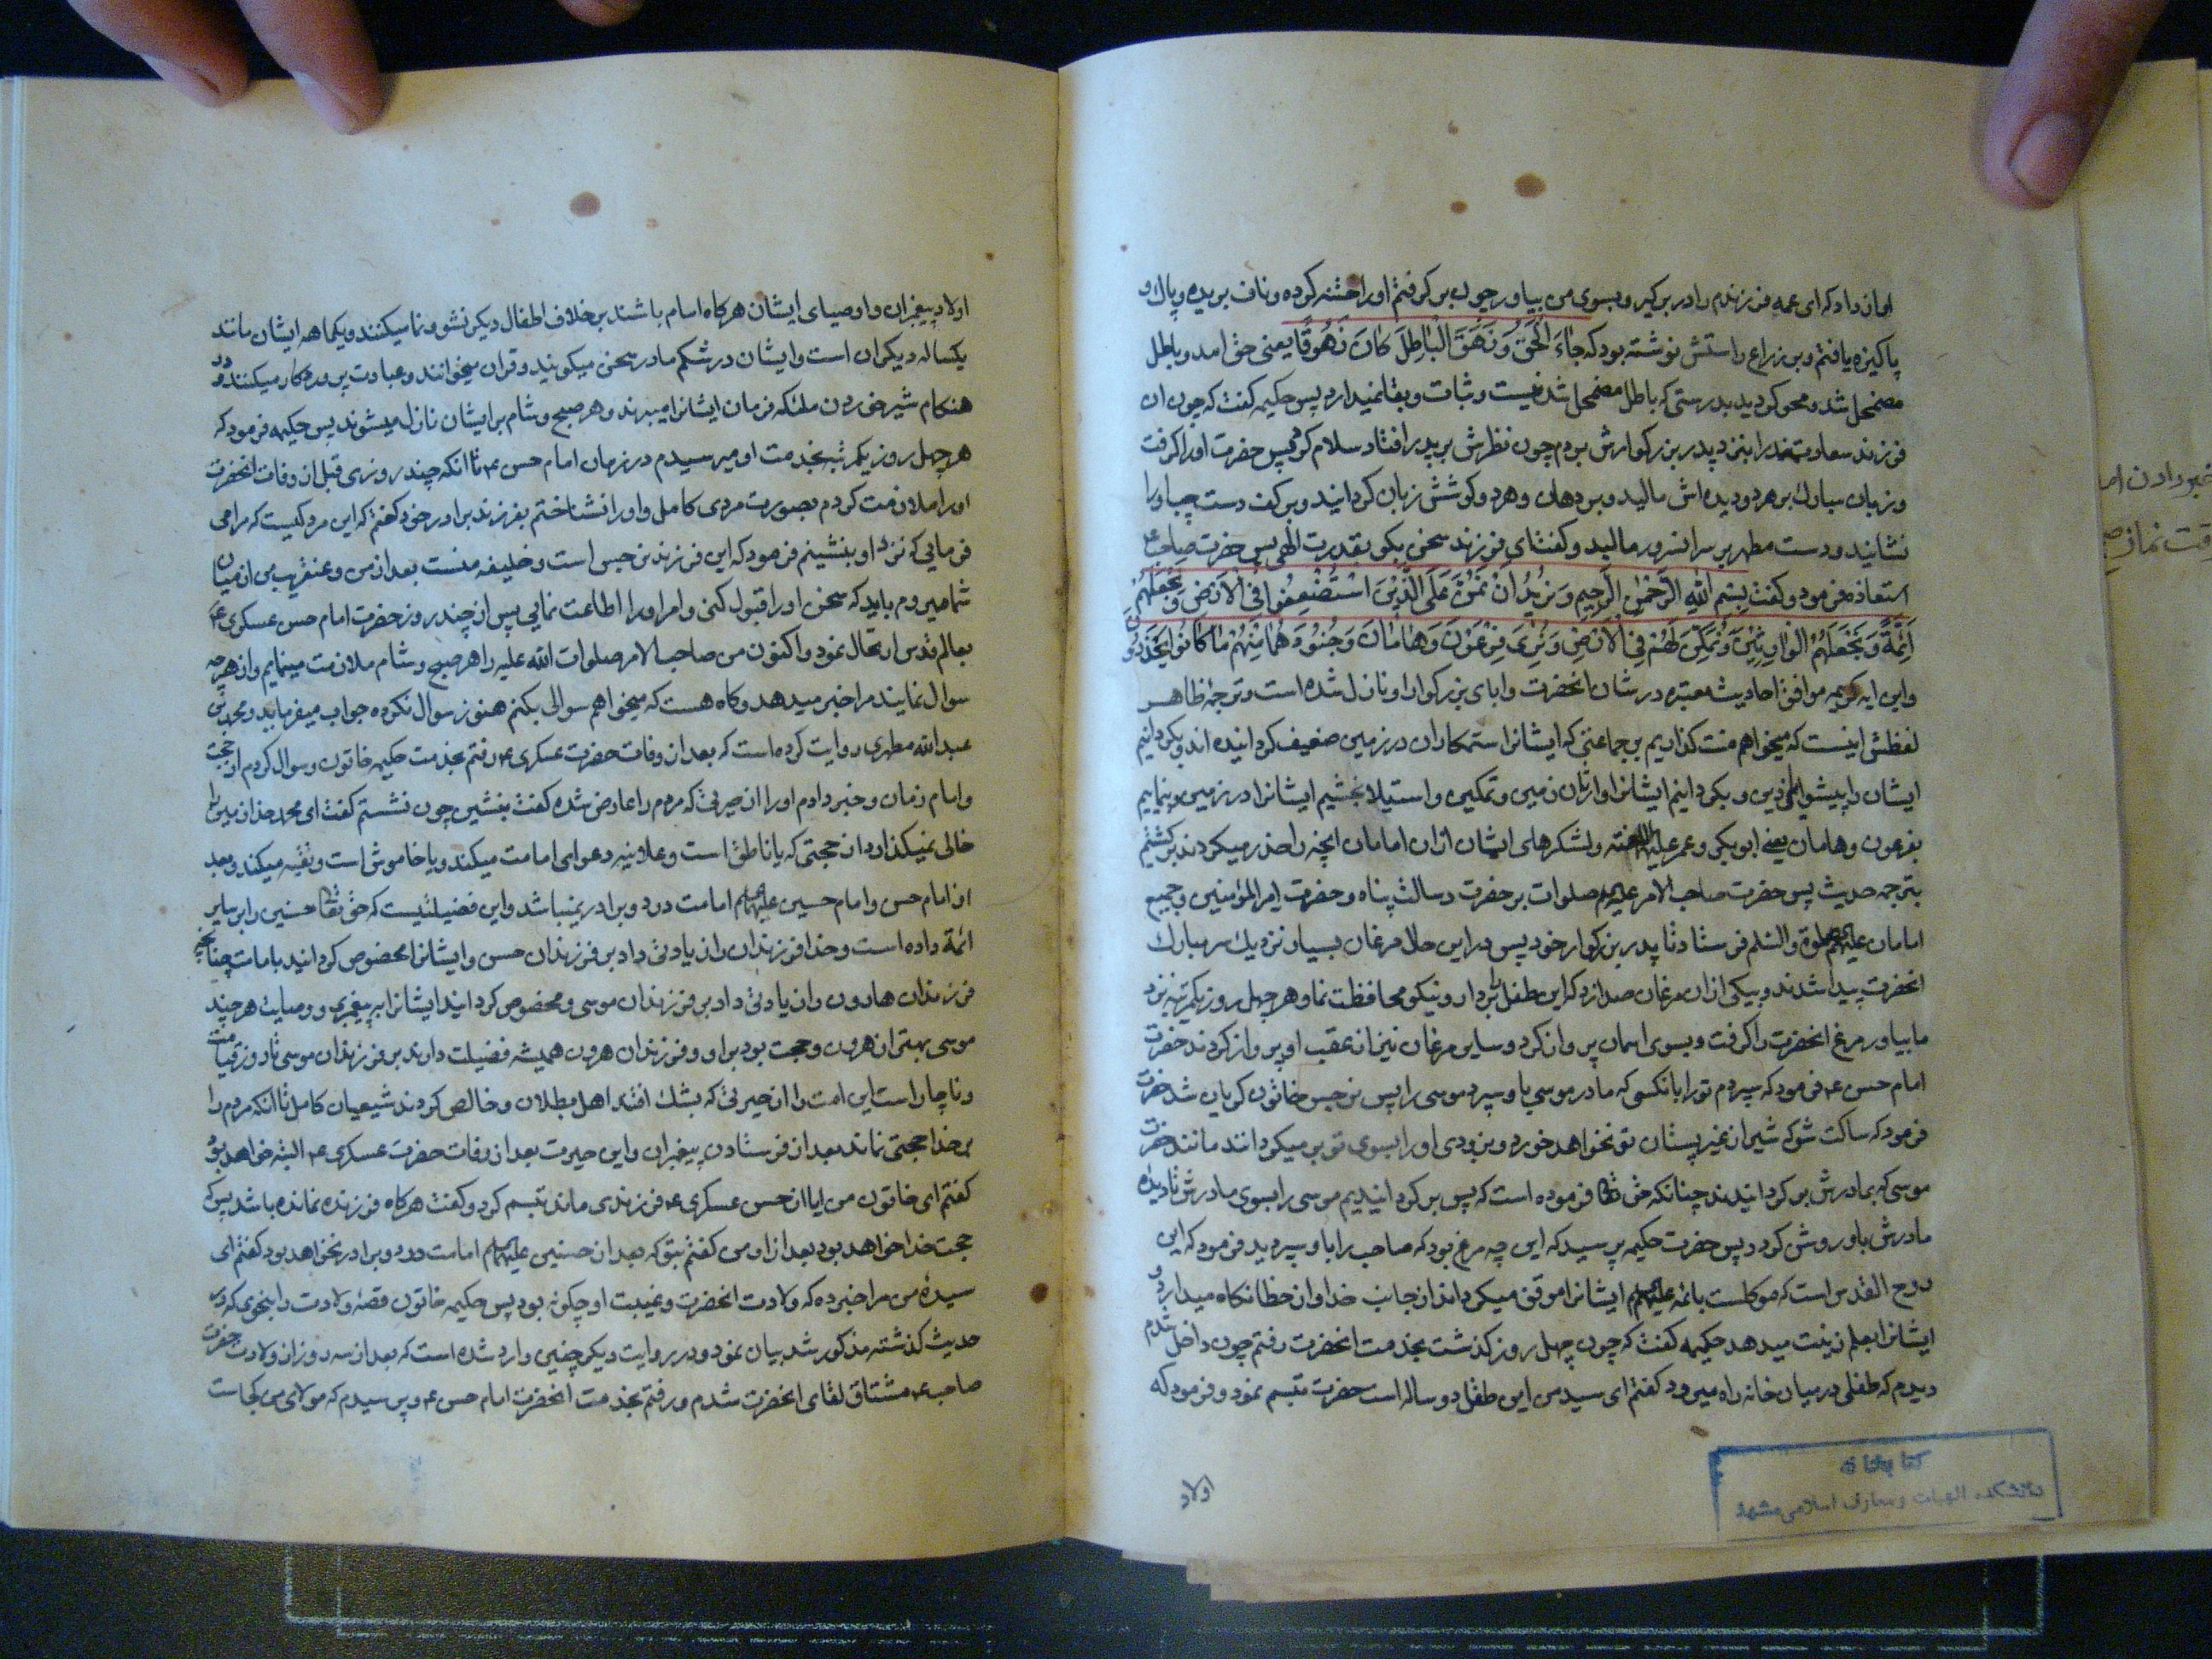 اواز داد که ای عمه فرزندم را در بر کیر و بسوی من بیاور چون بر کرفتم او را ختنه کرده و ناف بریده و پاک و
پاکیزه یافتم و بر زراع راستش نوشته بود که جاءَ الْحَقُّ وَ زَهَقَ الْبٰاطِلُ اِنَّ الْبٰاطِلَ كٰانَ زَهُوقًا یعنی حق امد و باطل
مضمحل شد و محو کردید بدرستی که باطل مضمحل شدنیست و ثبات و بقا نمیدارد پس حکیمه کفت که چون ان
فرزند سعادتمند را بنزد پدر بزرکوارش بردم چون نظرش بر پدر افتاد سلام کرد پس حضرت او را کرفت
و زبان مبارک بر هر دو دیده اش مالید و بر دهان و هر دو کوشش زبان کردانید و بر کف دست چپ او را
نشانید و دست مطهر بر سر انسرور مالید و کفت ای فرزند سخن بکو بقدرت الهی پس حضرت صاحب ع
استعاذه فرمود و کفت بِسْمِ اللّٰهِ الرَّحْمٰنِ الرَّحِیمِ وَ نُرِیدُ اَنْ نَمُنَّ عَلَی الَّذِیْنَ اسْتُضْعِفُوا فِی الْاَرْضِ وَ نَجْعَلَهُمْ
اَئِمَّةً وَ نَجْعَلَهُمُ الْوٰارِثِیْنَ وَ نُمَکِّنَ لَهُمْ فِی الْاَرْضِ وَ نُرِیَ فِرْعَوْنَ وَ هٰامٰانَ وَ جُنُودَهُمٰا مِنْهُمْ مٰا کٰانُوا یَحْذَرُونَ
و این ایه کریمه موافق احادیث معتبره در شان انحضرت و ابای بزرکوار او نازل شده است و ترجمهٔ ظاهر
لفظش اینست که میخواهم منت کذاریم بر جماعتی که ایشانرا ستمکاران در زمین ضعیف کردانیده اند و بکردانیم
ایشان را پیشوایان دین و بکردانیم ایشانرا وارثان زمین و تمکین و استیلا بخشیم ایشانرا در زمین و بنماییم
بفرعون و هامان یعنی ابوبکر و عمر علیهما اللعنه و لشکرهای ایشان ازان امامان انچه را حذر میکردند برکشتیم
بترجمه حدیث پس حضرت صاحب الامر علیه السلم صلوات بر حضرت رسالت پناه و حضرت امیر المؤمنین و جمیع
امامان علیهم الصلوة والسّلم فرستاد تا پدر بزرکوار خود پس در این حال مرغان بسیار نزدیک سر مبارک
انحضرت پیدا شدند و بیکی ازان مرغان صدا زد که این طفل را بردار و نیکو محافظت نما و هر چهل روز یکمرتبه نزد
ما بیاور مرغ انحضرت را کرفت و بسوی اسمان پرواز کرد و سایر مرغان نیز از عقب او پرواز کردند حضرت
امام حسن ع فرمود که سپردم تو را بانکسی که مادر موسی باو سپرد موسی را پس نرجس خاتون کریان شد حضرت
فرمود که ساکت شو که شیر از غیر پستان تو نخواهد خورد و بزودی او را بسوی تو بر میکردانند مانند حضرت
موسی که بمادرش بر کردانیدند چنانکه حق تعالی فرموده است که پس بر کردانیدیم موسی را بسوی مادرش تا دیدهٔ
مادرش باو روشن کردد پس حضرت حکیمه پرسید که این چه مرغ بود که صاحب را باو سپردید فرمود که این
روح القدس است که موکلست بائمه علیهم السلم ایشانرا موفق میکرداند از جانب خدا و از خطا نکاه میدارد و
ایشانرا بعلم زینت میدهد حکیمه کفت که چون چهل روز کذشت بخدمت انحضرت رفتم چون داخل شدم
دیدم که طفلی در میان خانه راه میرود کفتم ای سید من این طفل دو ساله است حضرت متبسم نمود و فرمود که
اولاد
کتابخانه
دانشکده الهیات و معارف اسلامی مشهد
اولاد پیغبران و اوصیای ایشان هرکاه امام باشند بر خلاف اطفال دیکر نشو و نما میکنند و یکماهه ایشان مانند
یکساله دیکران است و ایشان در شکم مادر سخن میکویند و قران میخوانند و عبادت پروردکار میکنند و در
هنکام شیر خوردن ملئکه فرمان ایشانرا میبرند و هر صبح و شام بر ایشان نازل میشوند پس حکیمه فرمود که
هر چهل روز یکمرتبه بخدمت او میرسیدم در زمان امام حسن ع تا انکه چند روزی قبل از وفات انحضرت
او را ملازمت کردم بصورت مردی کامل و او را نشناختم بفرزند برادر خود کفتم که این مرد کیست که مرا می
فرمایی که نزد او بنشینم فرمود که این فرزند نرجس است و خلیفه منست بعد از من و عنقریب من از میان
شما میروم باید که سخن او را قبول کنی و امر او را اطاعت نمایی پس از چند روز حضرت امام حسن عسکری ع
بعالم قدس ارتحال نمود و اکنون من صاحب الامر صلوات الله علیه را هر صبح و شام ملازمت مینمایم و از هر چه
سوال نمایند مرا خبر میدهد و کاه هست که میخواهم سوالی بکنم هنوز سوال نکرده جواب میفرماید و محمد بن
عبد الله مطهری روایت کرده است که بعد از وفات حضرت عسکری ع رفتم بخدمت حکیمه خاتون و سوال کردم از حجت
و امام زمان و خبر دادم او را از حیرتی که مردم را عارض شده کفت بنشین چون نشستم کفت ای محمد خدا زمین را
خالی نمیکذارد از حجتی که یا ناطق است و علانیه دعوای امامت میکند و یا خاموش است و تقیه میکند و بعد
از امام حسن و امام حسین علیهما السلم امامت در دو برادر نمیباشد و این فضیلتیست که حق تعالی حسنین را بر سایر
ائمة داده است و خدا فرزندان را زیادتی داد بر فرزندان حسن و ایشانرا مخصوص کردانید بامامت چنانچه
فرزندان هارون را زیادتی داد بر فرزندان موسی و مخصوص کردانید ایشانرا به پیغمبری و وصایت هر چند
موسی بهتر از هرون و حجت بود بر او و فرزندان هرون همیشه فضیلت دارند بر فرزندان موسی تا روز قیامت
و ناچار است این امت را از حیرتی که بشک افتند اهل بطلان و خالص کردند شیعیان کامل تا انکه مردم را
بر خدا حجتی نماند بعد از فرستادن پیغبران و این حیرت بعد از وفات حضرت عسکری ع البته خواهد بود
کفتم ای خاتون من ایا از حسن عسکری ع فرزندی ماند تبسم کرد و کفت هرکاه فرزنده نمانده باشد پس که
حجت خدا خواهد بود بعد از او من کفتم بتو که بعد از حسنین علیهما السلم امامت در دو برادر نخواهد بود کفتم ای
سیدهٔ من مرا خبر ده که ولادت انحضرت و غیبت او چکونه بود پس حکیمه خاتون قصهٔ ولادت را بنحوی که در
حدیث کذشته مذکور شد بیان نمود و در روایت دیکر چنین وارد شده است که بعد از سه روز از ولادت حضرت
صاحب ع مشتاق لقای انحضرت شدم و رفتم بخدمت انحضرت امام حسن ع و پرسیدم که مولای من کجاست